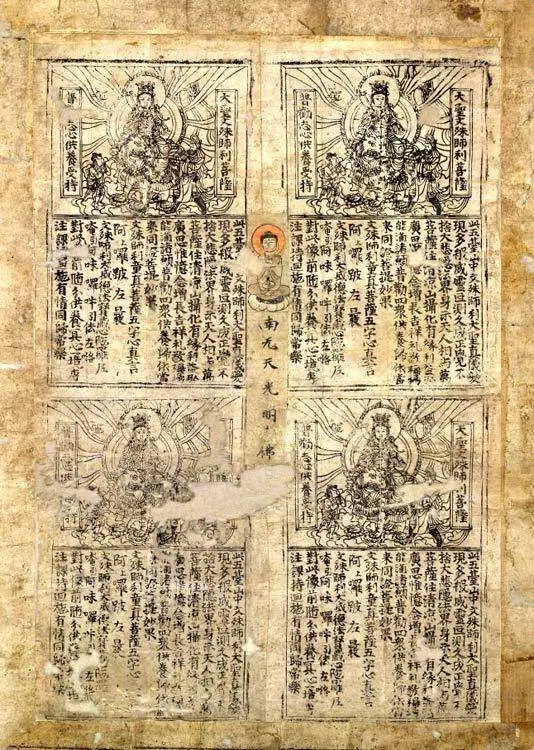 大聖文殊師利菩薩
普勸志心供養受持
此五臺山中文殊師利大聖真儀變
現多般威靈叵測久成正覺不
捨大悲隱法界身示天人相與萬
菩薩住清涼山攝化有緣利益弘
廣思惟憶念增長吉祥禮敬稱揚
能滿諸願普勸四眾供養歸依當
來同證菩提妙果
文殊師利童真菩薩五字心真言
阿上囉跛左曩
文殊師利大威德法寶藏心陀羅尼
唵引阿味囉吽引佉左洛
對此像前隨分供養冥心專
注課持迴施有情同歸常樂
大聖文殊師利菩薩
普勸志心供養受持
此五臺山中文殊師利大聖真儀變
現多般威靈叵測久成正覺不
捨大悲隱法界身示天人相與萬
菩薩住清涼山攝化有緣利益弘
廣思惟憶念增長吉祥禮敬稱揚
能滿諸願普勸四眾供養歸依當
來同證菩提妙果
文殊師利童真菩薩五字心真言
阿上囉跛左曩
文殊師利大威德法寶藏心陀羅尼
唵引阿味囉吽引佉左洛
對此像前隨分供養冥心專
注課持迴施有情同歸常樂
南无天光明佛
大聖文殊師利菩薩
普勸志心供養受持
此五臺山中文殊師利大聖真儀變
現多般威靈叵測久成正覺不
捨大悲隱法界身示天人相與萬
菩薩住清涼山攝化有緣利益弘
廣思惟憶念增長吉祥禮敬稱揚
能滿諸願普勸四眾供養歸依當
來同證菩提妙果
文殊師利童真菩薩五字心真言
阿上囉跛左曩
文殊師利大威德法寶藏心陀羅尼
唵引阿味囉吽引佉左洛
對此像前隨分供養冥心專
注課持迴施有情同歸常樂
普勸志心供
此五臺山中文殊師利大聖真儀變
現多般威靈叵測久成正覺不
捨大悲隱法界身示天人相與萬
菩薩住清涼山攝化有緣利益弘
廣思惟憶念增長吉祥禮敬稱揚
能滿諸願普勸四眾供養歸依當
來同證菩提妙果
文殊師利童真菩薩五字心真言
阿上囉跛左曩
文殊師利大威德法寶藏心陀羅尼
唵引阿味囉吽引佉左洛
對此像前隨分供養冥心專
注課持迴施有情同歸常樂